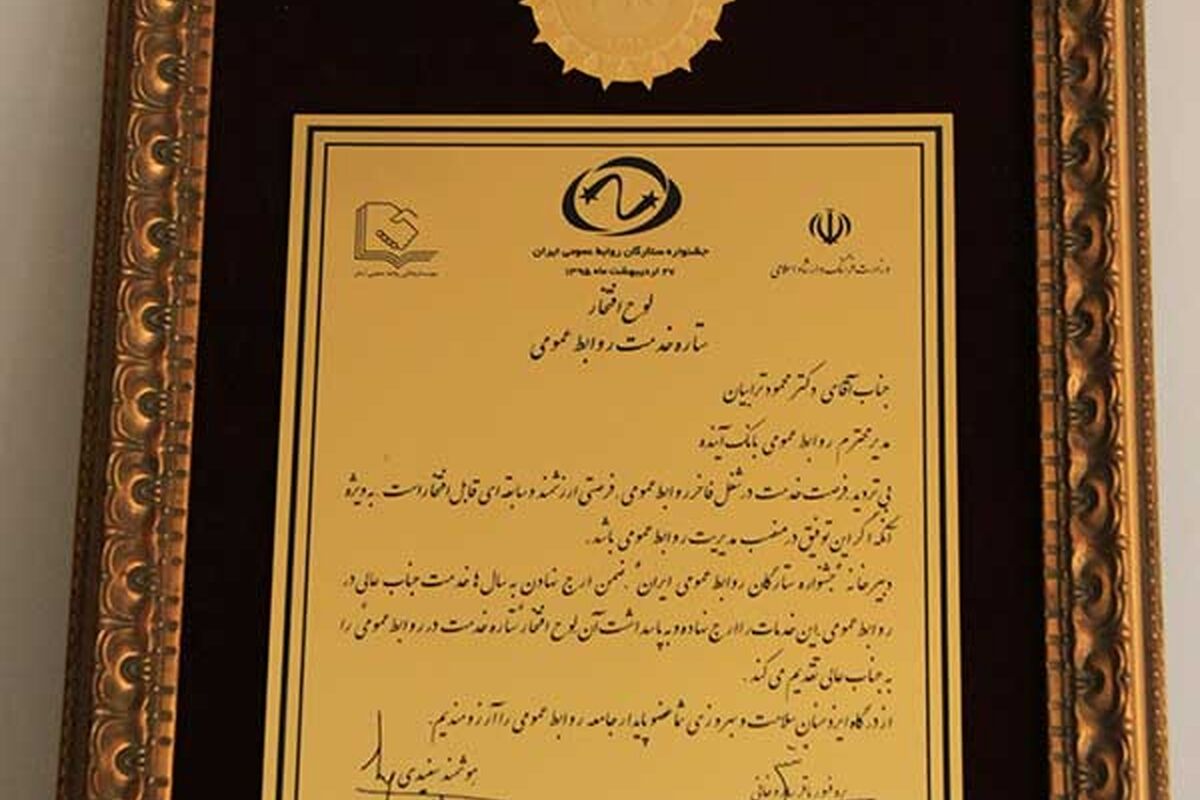 جشنواره ستارگان روابط عمومی ایران
۲۷ اردیبهشت ماه ۱۳۹۵
وزارت فرهنگ و ارشاد اسلامی
لوح افتخار
ستاره خدمت روابط عمومی
جناب آقای دکتر محمود ترابیان
مدیر محترم روابط عمومی بانک آینده
بی تردید، فرصت خدمت در شغل فاخر روابط عمومی، فرصتی ارزشمند و سابقه ای قابل افتخار است. به ویژه
آنکه اگر این توفیق در منصب مدیریت روابط عمومی باشد.
دبیرخانه "جشنواره ستارگان روابط عمومی ایران" ضمن ارج نهادن به سال ها خدمت جناب عالی در
روابط عمومی، این خدمات را ارج نهاده و به پاسداشت آن لوح افتخار "ستاره خدمت در روابط عمومی" را
به جناب عالی تقدیم می کند.
از درگاه ایزد منان سلامت و بهروزی شما عضو پایدار جامعه روابط عمومی را آرزومندیم.
هوشمند سفیدی